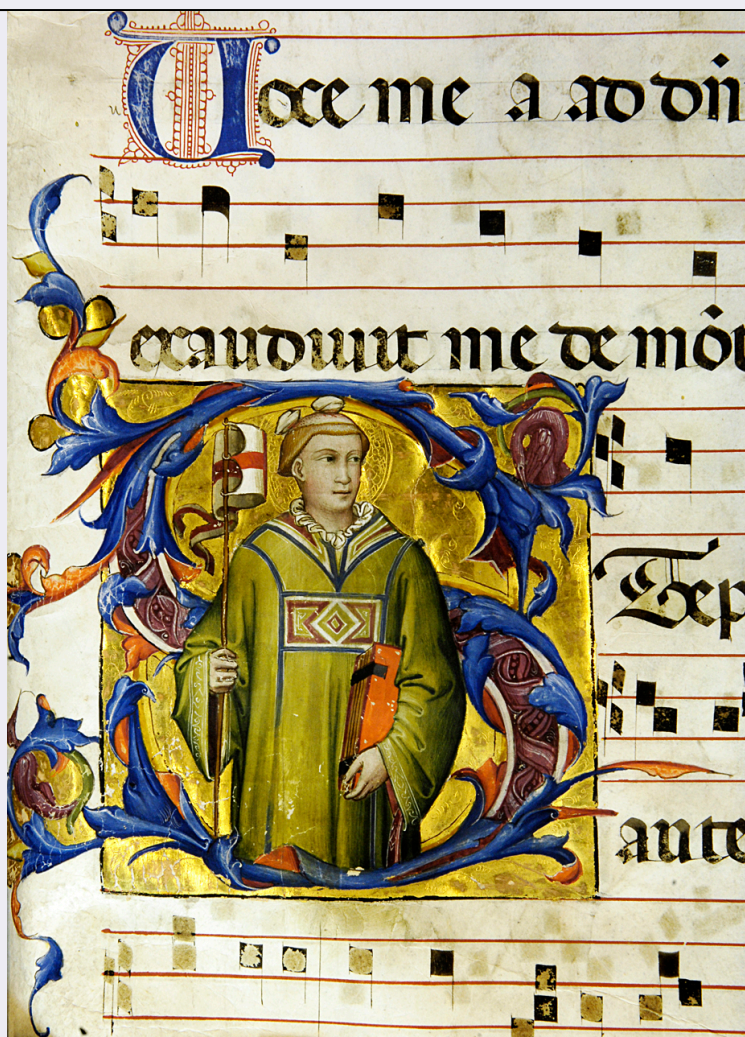 Uoce me a ad dn̄
exaudiuit me de mōt
Step
aute